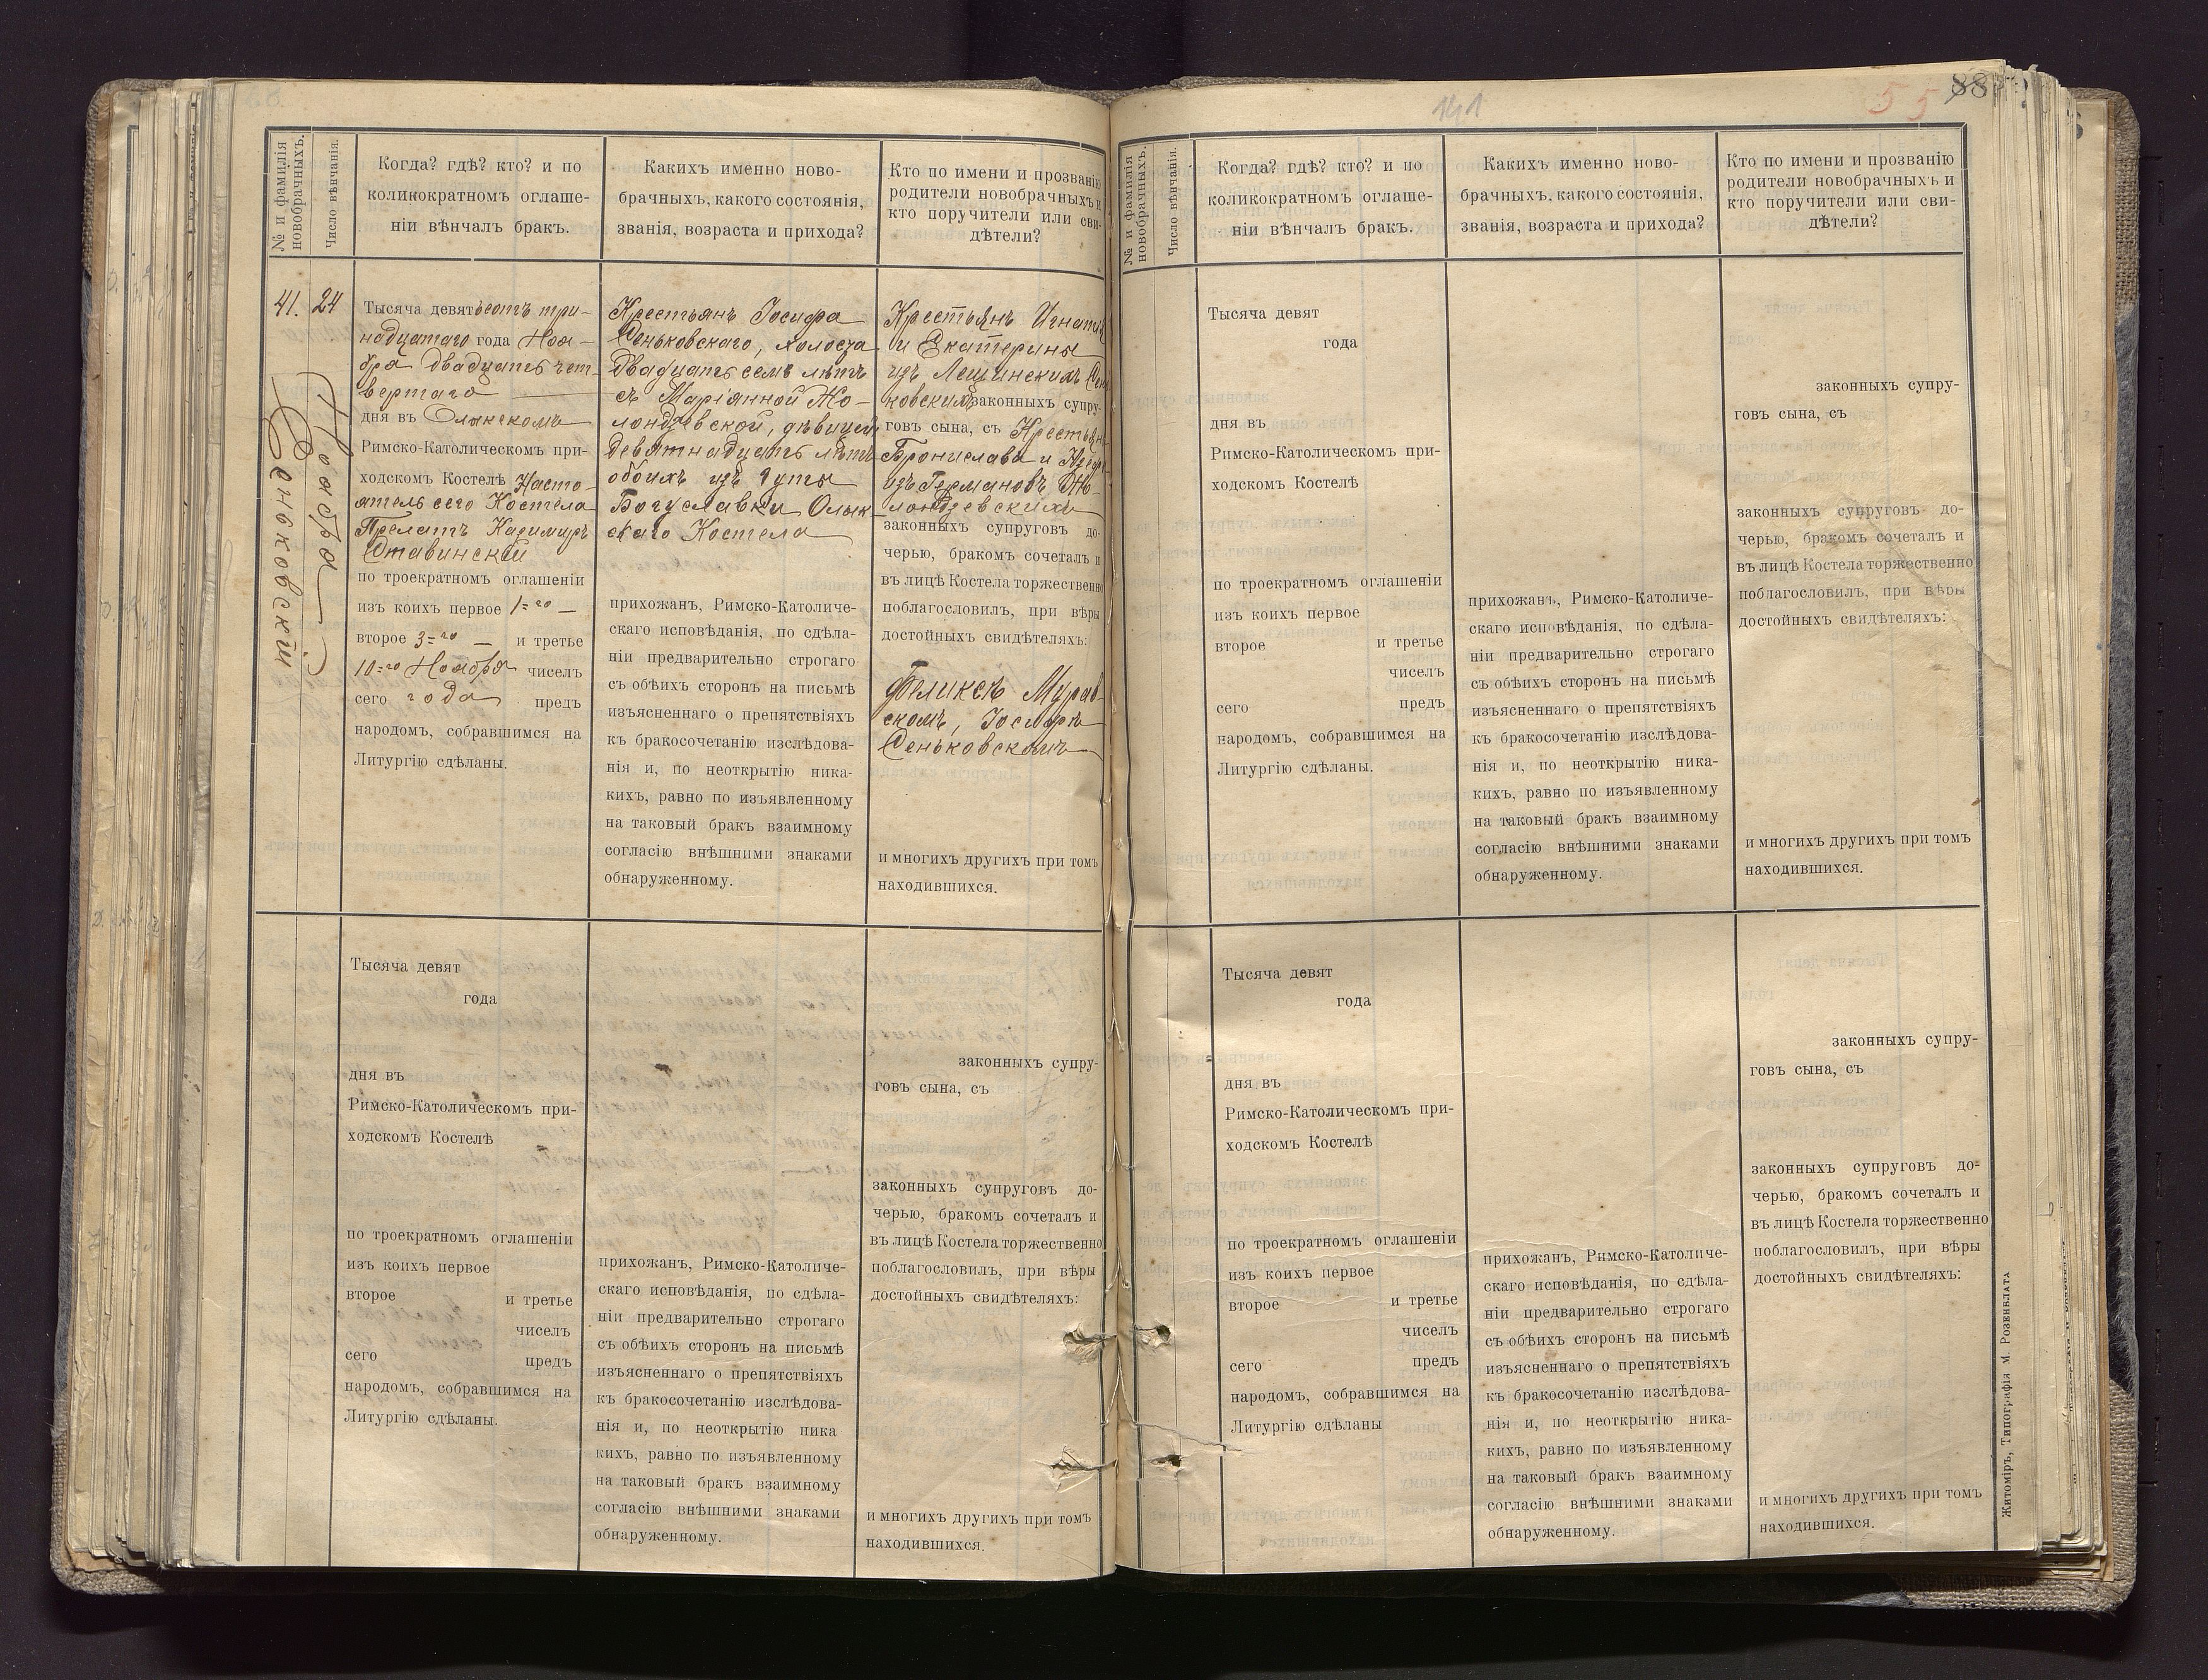 № и фамилія
новобрачныхъ.
Число вѣнчанія.
Когда? гдѣ? кто? и по
коликократномъ оглаше-
ніи вѣнчалъ бракъ.
Какихъ именно ново-
брачныхъ, какого состоянія,
званія, возраста и прихода?
Кто по имени и прозванію
родители новобрачныхъ и
кто поручители или сви-
дѣтели?
41.
Сеньковскій
24
Ноября
Тысяча девятьсотъ три-
надцатаго года Ноя-
бря двадцать чет-
вертаго
дня въ Олыкскомъ
Римско-Католическомъ при-
ходскомъ Костелѣ Насто-
ятель сего Костела
Прелатъ Казимиръ
Ставинскій
по троекратномъ оглашеніи
изъ коихъ первое 1=го —
второе 3=го — и третье
10=го Ноября чиселъ
сего года предъ
народомъ, собравшимся на
Литургію сдѣланы.
Крестьянъ Іосифа
Сеньковскаго, холоста
двадцать семь лѣтъ
съ Маріанной Жо-
лондзевской, дѣвицей
девятнадцать лѣтъ
обоихъ изъ Гуты
Богуславки Олык-
скаго Костела
прихожанъ, Римско-Католиче-
скаго исповѣданія, по сдѣла-
ніи предварительно строгаго
съ обѣихъ сторонъ на письмѣ
изъясненнаго о препятствіяхъ
къ бракосочетанію изслѣдова-
нія и, по неоткрытію ника-
кихъ, равно по изъявленному
на таковый бракъ взаимному
согласію внѣшними знаками
обнаруженному.
Крестьянъ Игнатія
и Екатерины
изъ Лещинскихъ Сень
ковскихъ законныхъ супру-
говъ сына, съ Крестьянъ
Бронислава и
изъ Германовъ Жо-
лондзевскихъ
законныхъ супруговъ до-
черью, бракомъ сочеталъ и
въ лицѣ Костела торжественно
поблагословилъ, при вѣры
достойныхъ свидѣтеляхъ:
Феликсѣ Мурав-
скомъ, Іосифѣ
Сеньковскомъ
и многихъ другихъ при томъ
находившихся.
Тысяча девят
года
дня въ
Римско-Католическомъ при-
ходскомъ Костелѣ
по троекратномъ оглашеніи
изъ коихъ первое
второе и третье
чиселъ
сего предъ
народомъ, собравшимся на
Литургію сдѣланы.
прихожанъ, Римско-Католиче-
скаго исповѣданія, по сдѣла-
ніи предварительно строгаго
съ обѣихъ сторонъ на письмѣ
изъясненнаго о препятствіяхъ
къ бракосочетанію изслѣдова-
нія и, по неоткрытію ника
кихъ, равно по изъявленному
на таковый бракъ взаимному
согласію внѣшними знаками
обнаруженному.
законныхъ супру-
говъ сына, съ
законныхъ супруговъ до-
черью, бракомъ сочеталъ и
въ лицѣ Костела торжественно
поблагословилъ, при вѣры
достойныхъ свидѣтеляхъ:
и многихъ другихъ при томъ
находившихся.
141
55
88
№ и фамилія
новобрачныхъ.
Число вѣнчанія.
Когда? гдѣ? кто? и по
коликократномъ оглаше-
ніи вѣнчалъ бракъ.
Какихъ именно ново-
брачныхъ, какого состоянія,
званія, возраста и прихода?
Кто по имени и прозванію
родители новобрачныхъ и
кто поручители или сви-
дѣтели?
Тысяча девят
года
дня въ
Римско-Католическомъ при-
ходскомъ Костелѣ
по троекратномъ оглашеніи
изъ коихъ первое
второе и третье
чиселъ
сего предъ
народомъ, собравшимся на
Литургію сдѣланы.
прихожанъ, Римско-Католиче-
скаго исповѣданія, по сдѣла-
ніи предварительно строгаго
съ обѣихъ сторонъ на письмѣ
изъясненнаго о препятствіяхъ
къ бракосочетанію изслѣдова-
нія и, по неоткрытію ника-
кихъ, равно по изъявленному
на таковый бракъ взаимному
согласію внѣшними знаками
обнаруженному.
законныхъ супру-
говъ сына, съ
законныхъ супруговъ до-
черью, бракомъ сочеталъ и
въ лицѣ Костела торжественно
поблагословилъ, при вѣры
достойныхъ свидѣтеляхъ:
и многихъ другихъ при томъ
находившихся.
Тысяча девят
года
дня въ
Римско-Католическомъ при-
ходскомъ Костелѣ
по троекратномъ оглашеніи
изъ коихъ первое
второе и третье
чиселъ
сего предъ
народомъ, собравшимся на
Литургію сдѣланы
прихожанъ, Римско-Католиче-
скаго исповѣданія, по сдѣла-
ніи предварительно строгаго
съ обѣихъ сторонъ на письмѣ
изъясненнаго о препятствіяхъ
къ бракосочетанію изслѣдова-
нія и, по неоткрытію ника-
кихъ, равно по изъявленному
на таковый бракъ взаимному
согласію внѣшними знаками
обнаруженному.
законныхъ супру-
говъ сына, съ
законныхъ супруговъ до-
черью, бракомъ сочеталъ и
въ лицѣ Костела торжественно
поблагословилъ, при вѣры
достойныхъ свидѣтеляхъ:
и многихъ другихъ при томъ
находившихся.
Житоміръ, Типографія М. Розенблата